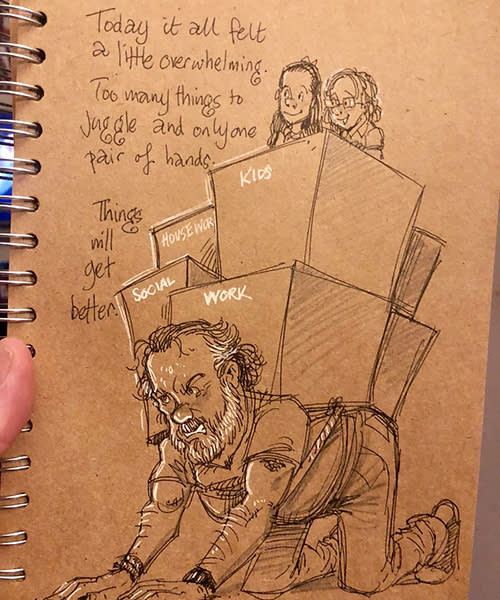 Today it all felt
a little overwhelming.
Too many things to
juggle and only one
pair of hands.
Things
will
get
better.
KIDS
HOUSEWOR
SOCIAL
WORK